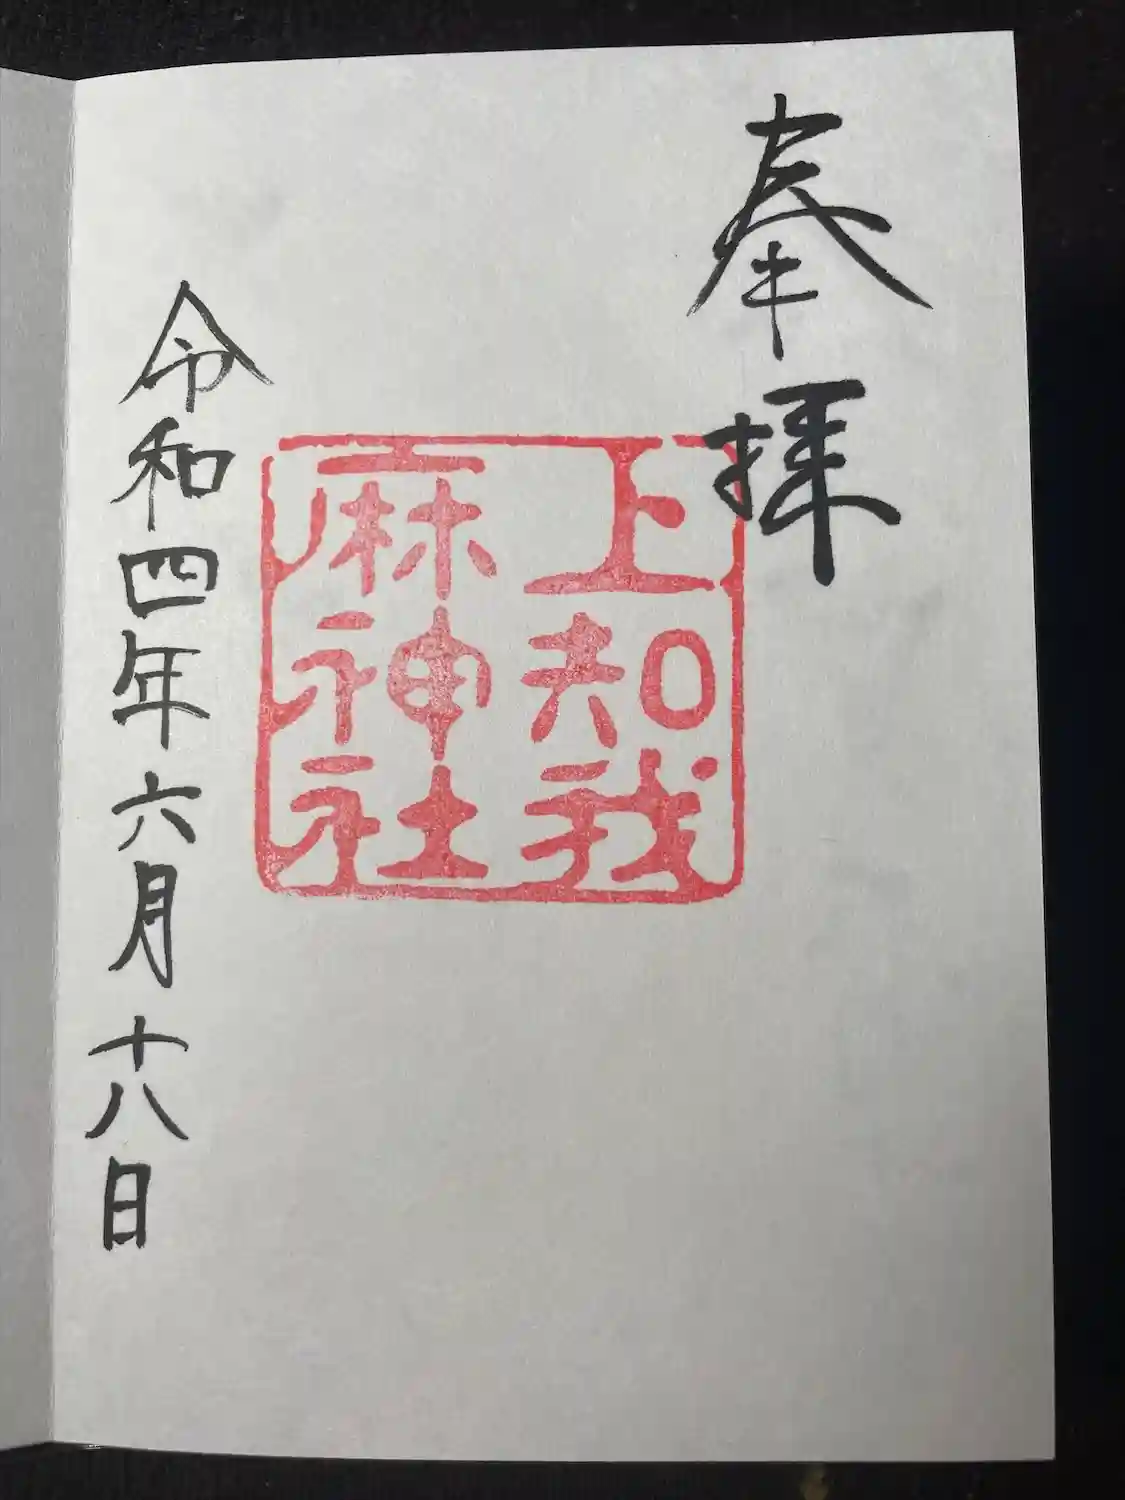 奉拝
上知我
麻神社
令和四年六月十八日